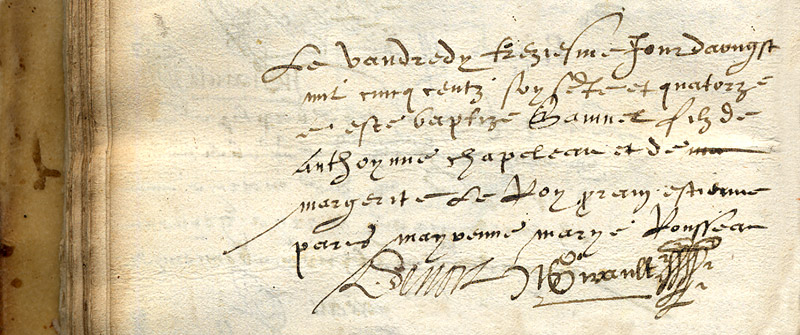 Le vandredy treziesme Jour daougst
mil cincq centz soysente et quatorze
a este baptize Samuel filz de
Anthoynne chapeleau et de
margerite Le Roy prain estienne
paris mayrenne marye Rousseau